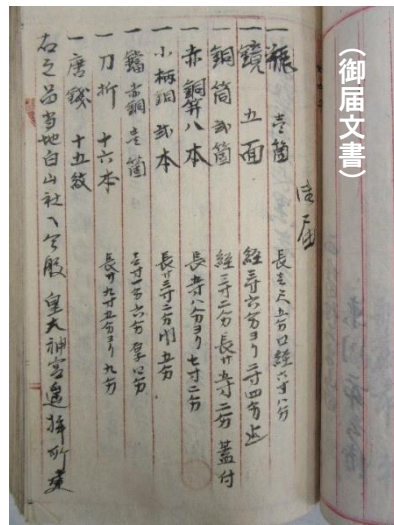 （御届文書）
御届
一瓶　壱箇　長壱尺五分口経六寸八分
一鏡　五面　経三寸六分ヨリ二寸四分迄
一銅筒弐箇　経三寸二分長サ五寸二分蓋付
一赤銅笄八本　長五寸八分ヨリ七寸二分
一小柄銅弐本　長サ三寸二分巾五分
一鐺赤銅壱箇　壱寸四分六分厚八分
一刀折十六本　長サ九寸五分ヨリ九分
一唐銭十五枚
右之品当地白山社ヘ今般皇大神宮遥拝所建